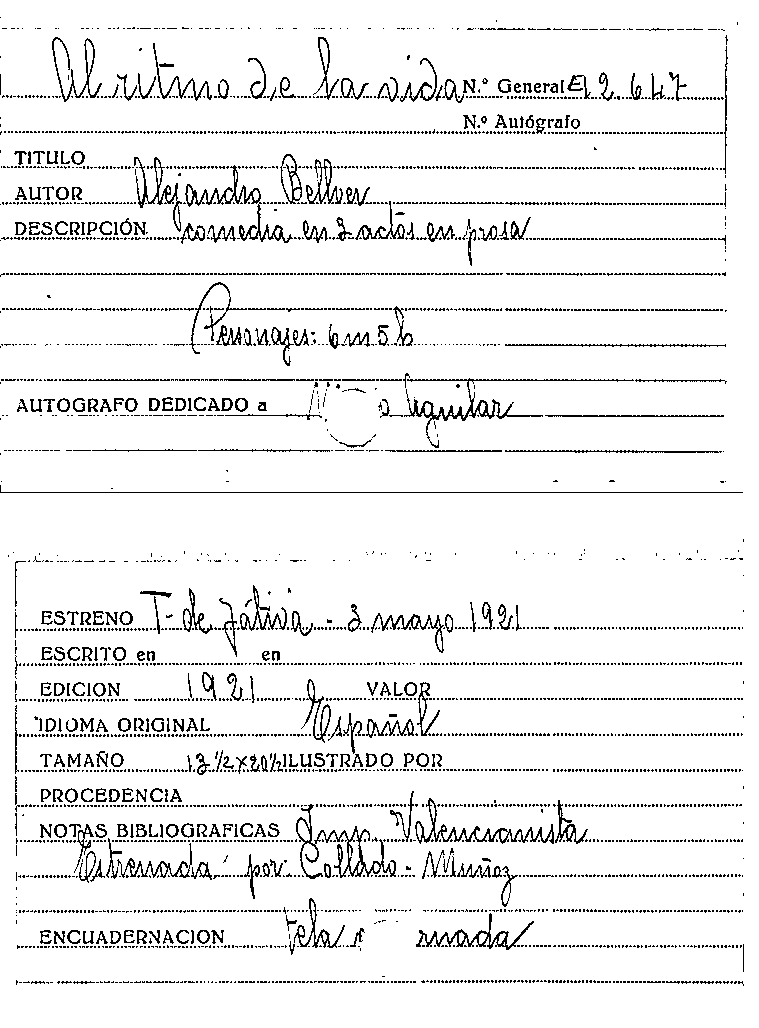 Al ritmo de la vida N.º General E 2.647
N.º Autógrafo
TITULO
AUTOR Alejandro Bellver
DESCRIPCIÓN comedia en 3 actos en prosa
Personajes: 6 m 5 h
AUTOGRAFO DEDICADO a Aguilar
ESTRENO T- de Játiva - 3 mayo 1921
ESCRITO en en
EDICION 1921 VALOR
IDIOMA ORIGINAL Español
TAMAÑO 13 1/2 x 20 1/2 ILUSTRADO POR
PROCEDENCIA
NOTAS BIBLIOGRAFICAS Imp. Valencianista
Estrenada por: Collado - Muñoz
ENCUADERNACION tela